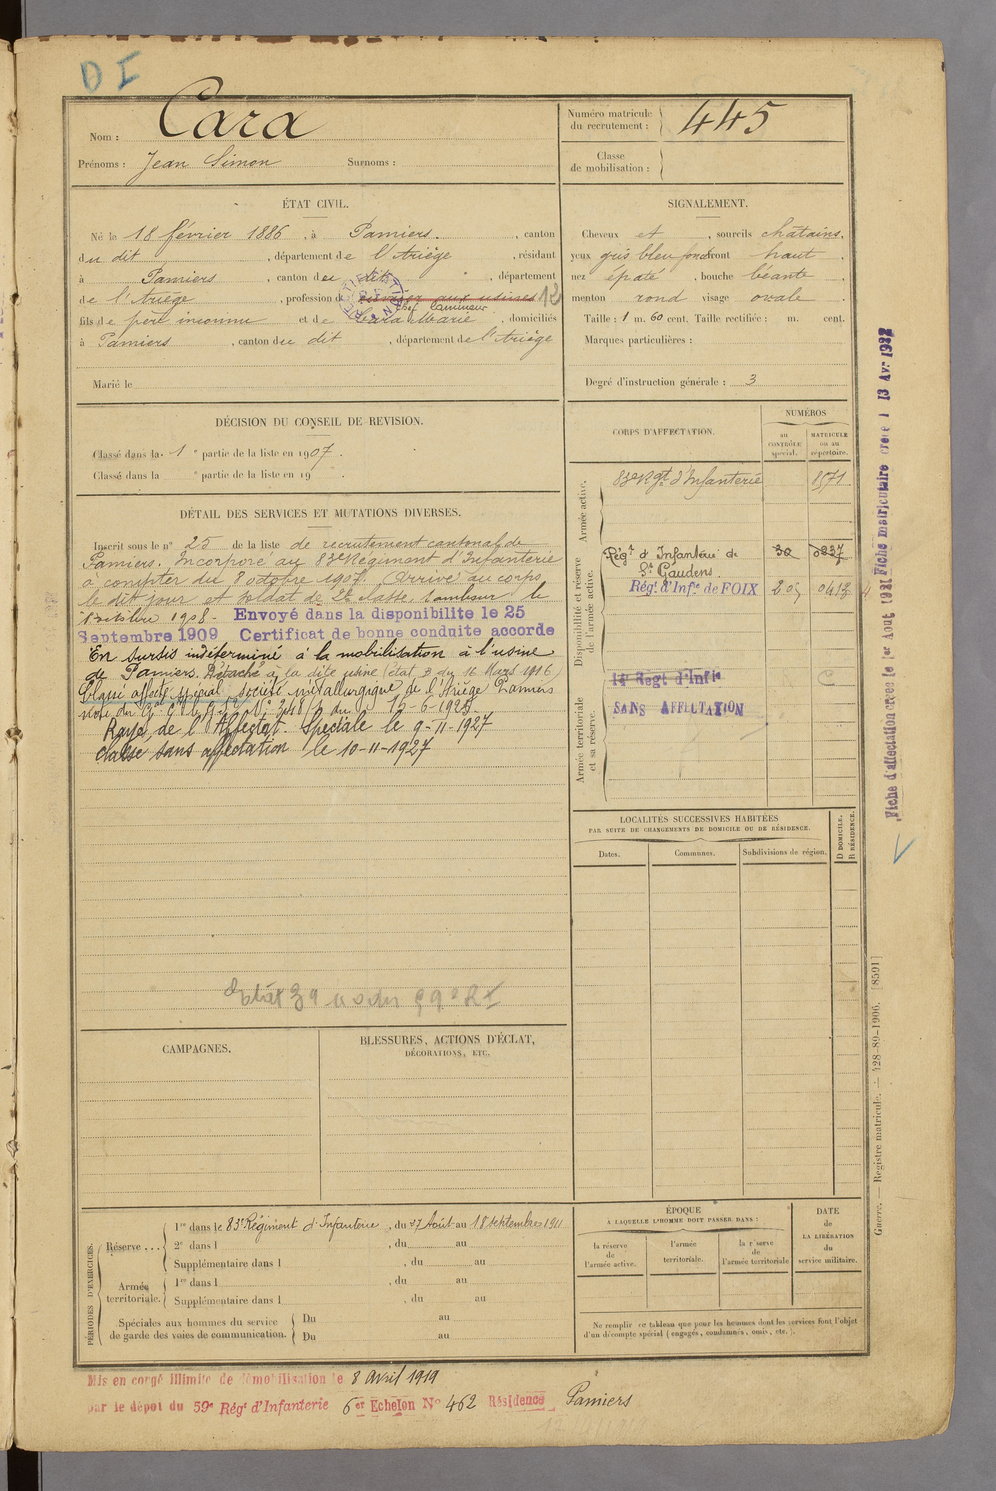 D I
Nom : Cara
Prénoms : Jean Simon Surnoms :
Numéro matricule du recrutement : 445
Classe de mobilisation :
ÉTAT CIVIL.
Né le 18 février 1886, à Pamiers, canton
du dit, département de l'Ariège, résidant
à Pamiers, canton du dit, département
de l'Ariège, profession de ouvrier aux usines 12
chef lamineur
fils de père inconnu et de Cara Marie, domiciliés
à Pamiers, canton du dit, département de l'Ariège
Marié le
SIGNALEMENT.
Cheveux et, sourcils châtains,
yeux gris bleu foncé front haut,
nez épaté, bouche béante
menton rond visage ovale
Taille : 1 m. 60 cent. Taille rectifiée : m. cent.
Marques particulières :
Degré d'instruction générale : 3
DÉCISION DU CONSEIL DE REVISION.
Classé dans la 1e partie de la liste en 1907.
Classé dans la e partie de la liste en 19 .
DÉTAIL DES SERVICES ET MUTATIONS DIVERSES.
Inscrit sous le n° 25 de la liste de recrutement cantonal de
Pamiers. Incorporé au 83e Régiment d'Infanterie
à compter du 8 octobre 1907. Arrivé au corps
le dit jour et soldat de 2e classe. Tambour le
octobre 1908. Envoyé dans la disponibilite le 25
Septembre 1909 Certificat de bonne conduite accorde
En sursis indéterminé à la mobilisation à l'usine
de Pamiers. Détaché à la dite usine (état 3 du 16 Mars 1916
Classé affecté spécial, société métallurgique de l'Ariège Pamiers
Rayé de l'Affectat. Spéciale le 9-11-1927
Classé sans affectation le 10-11-1927
CORPS D'AFFECTATION.
NUMÉROS
au CONTRÔLE spécial.
MATRICULE ou au répertoire.
Armée active.
83e Rgt d'Infanterie 8571
Disponibilité et réserve de l'armée active.
Régt d'Infanterie de St Gaudens 30 0837
Régt. d'Infie de FOIX 205
Armée territoriale et sa réserve.
14e Regt d'Infie C
SANS AFFECTATION
LOCALITÉS SUCCESSIVES HABITÉES
PAR SUITE DE CHANGEMENTS DE DOMICILE OU DE RÉSIDENCE.
Dates. Communes. Subdivisions de région.
D DOMICILE. R RÉSIDENCE.
CAMPAGNES.
BLESSURES, ACTIONS D'ÉCLAT,
DÉCORATIONS, ETC.
PÉRIODES D'EXERCICES.
Réserve ... 1re dans le 83e Régiment d'Infanterie, du 27 Août au 18 septembre 1911
2e dans l , du au
Supplémentaire dans l , du au
Armée territoriale. 1re dans l , du au
Supplémentaire dans l , du au
Spéciales aux hommes du service Du au
de garde des voies de communication. Du au
ÉPOQUE
À LAQUELLE L'HOMME DOIT PASSER DANS :
la réserve de l'armée active.
l'armée territoriale.
la réserve de l'armée territoriale
DATE de LA LIBÉRATION du service militaire.
Ne remplir ce tableau que pour les hommes dont les services font l'objet
d'un décompte spécial (engagés, condamnés, omis, etc.).
Mis en congé illimité de démobilisation le 8 Avril 1919
par le dépot du 59e Régt d'Infanterie 6er Echelon No 462 Résidence Pamiers
Fiche d'affectation créée le 1er Aout 1931 Fiche matriculaire créée l 13 Avr 1932
Guerre. — Registre matricule. — 428-89-1906. [8591]